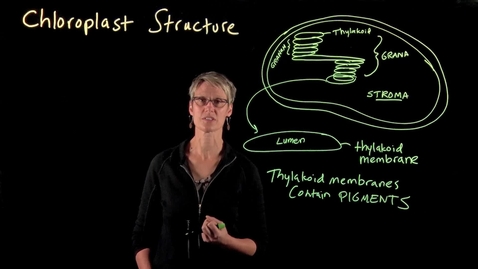 Chloroplast Structure
Thylakoid
GRANUM
GRANA
STROMA
Lumen
thylakoid
membrane
Thylakoid membranes
Contain PIGMENTS